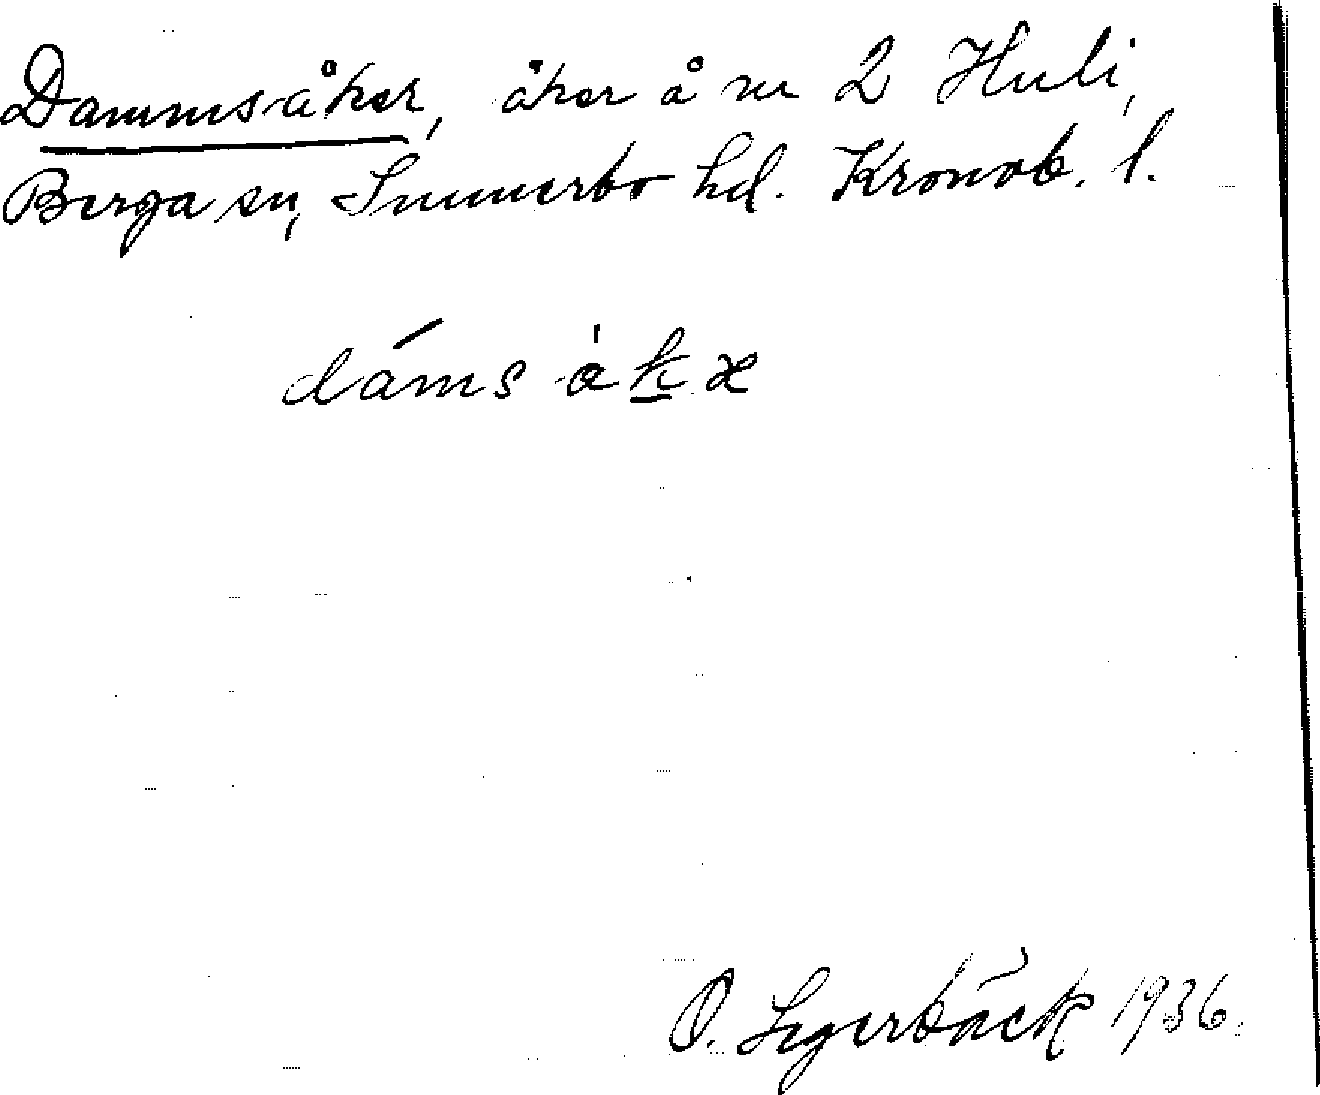 Dammsåker, åker å nr 2 Huli,
Berga sn, Sunnerbo hd. Kronob. l.
dáms åkæ
O. Segerbäck 1936.